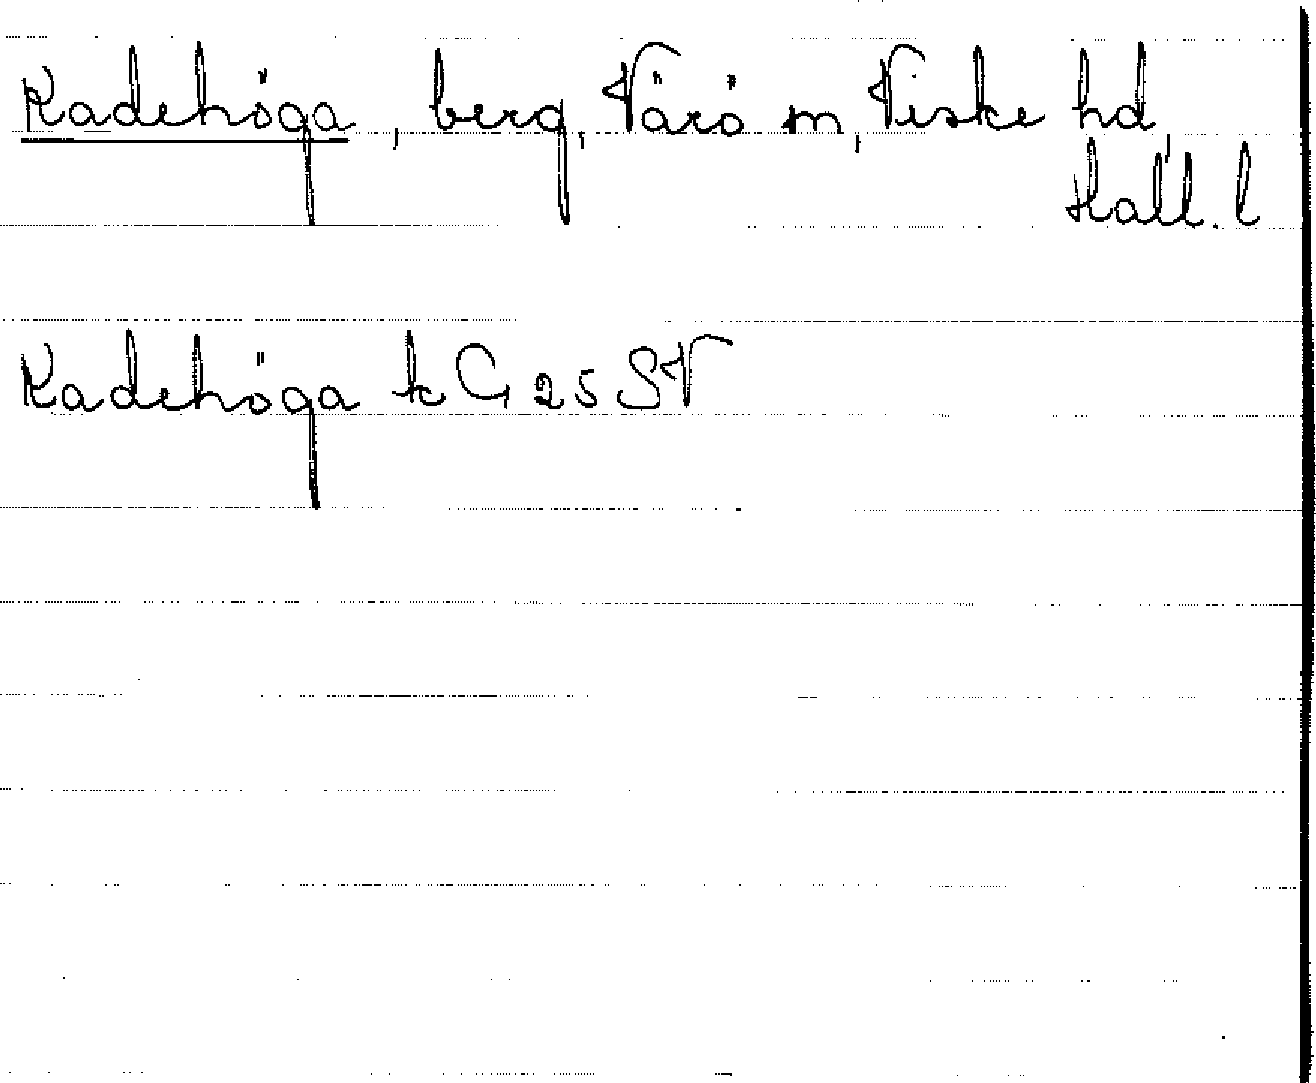 Kadehöga, berg, Värö sn, Viske hd,
Hall. l
Kadehöga tc G 25 SV